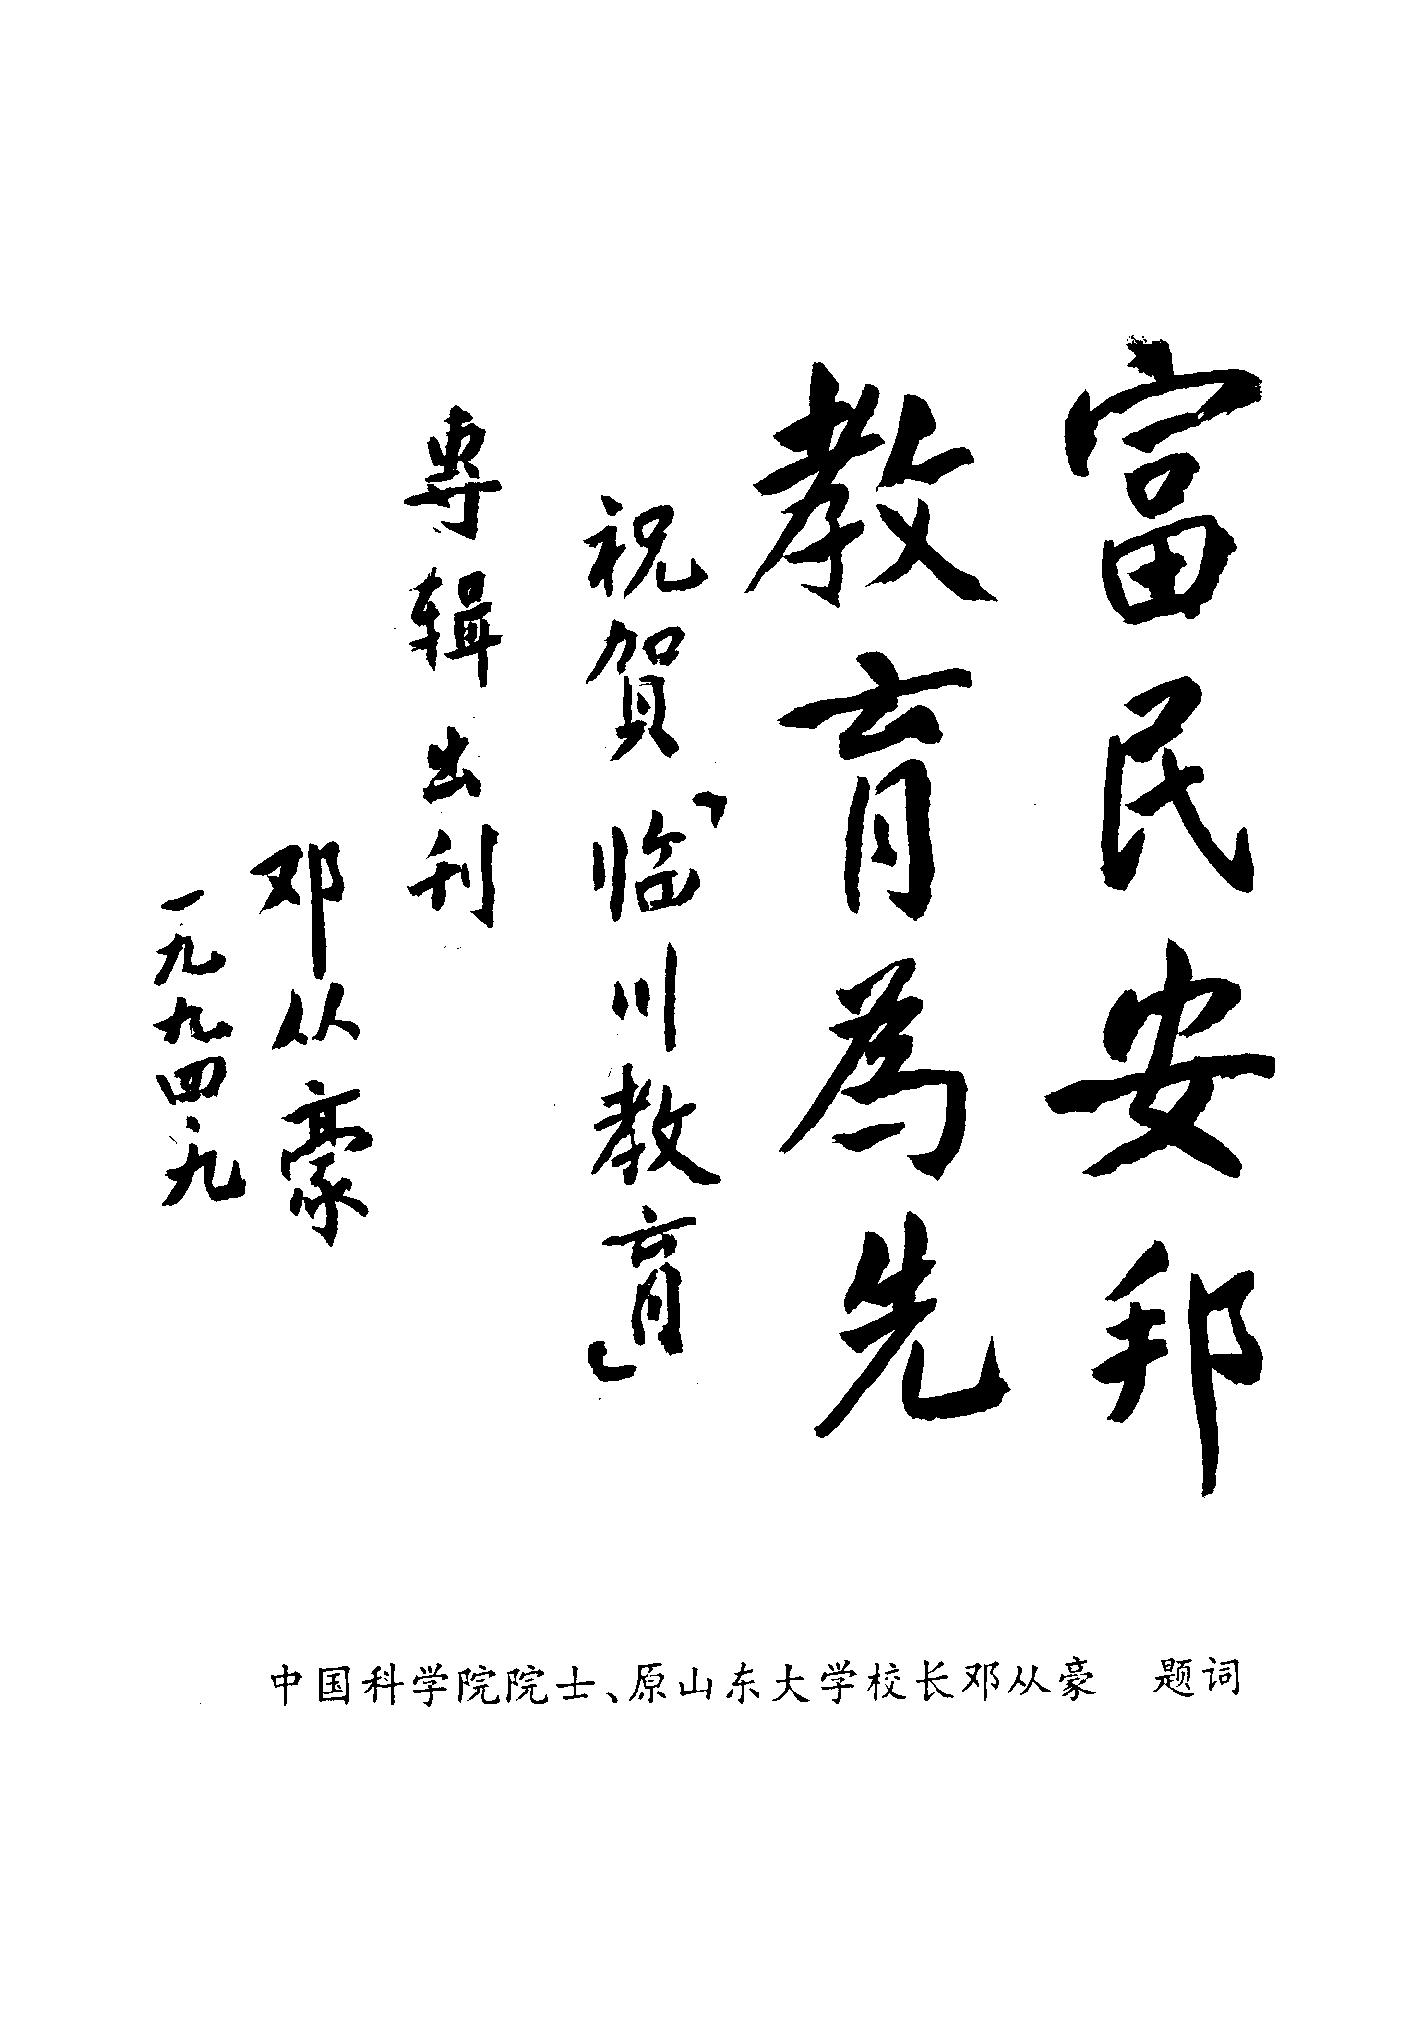 富民安邦
教育為先
祝賀「临川教育」
專辑出刊
邓从豪
一九九四.九
中国科学院院士、原山东大学校长邓从豪 题词